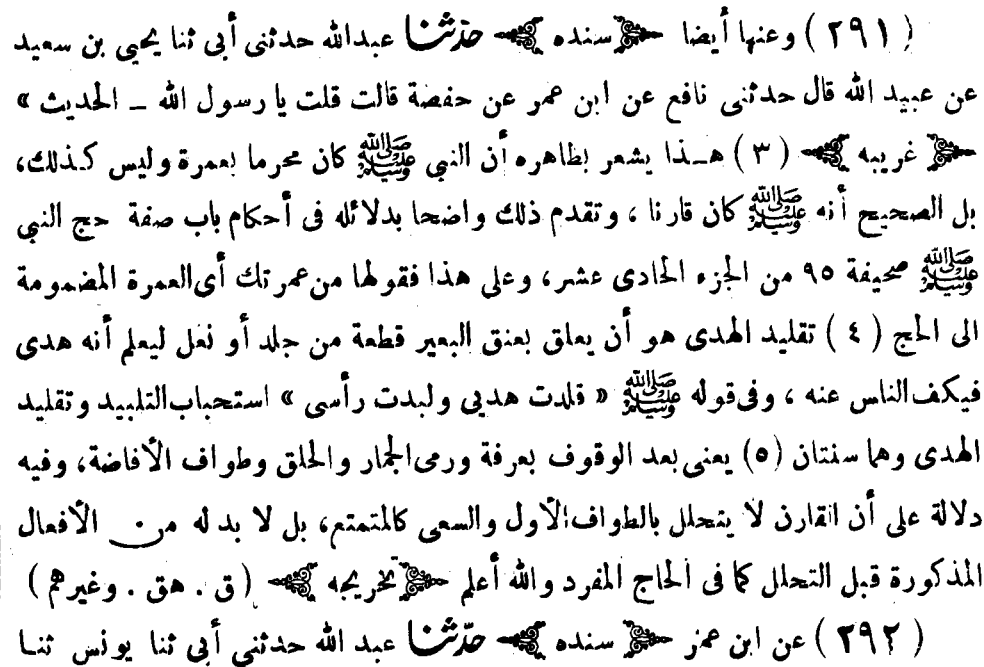 (٢٩١) وعنها أيضا ﴿سنده﴾ حدّثنا عبدالله حدثنى أبى ثنا يحيى بن سعيد
عن عبيد الله قال حدثنى نافع عن ابن عمر عن حفصة قالت قلت يا رسول الله ــ الحديث »
﴿غريبه﴾ (٣) هـذا يشعر بظاهره أن النبى ﷺ كان محرما بعمرة وليس كـذلك،
بل الصحيح أنه ﷺ كان قارنا ، وتقدم ذلك واضحا بدلائله فى أحكام باب صفة حج النبى
ﷺ صحيفة ٩٥ من الجزء الحادى عشر، وعلى هذا فقولها من عمرتك أى العمرة المضمومة
الى الحج (٤) تقليد الهدى هو أن يعلق بعنق البعير قطعة من جلد أو نعل ليعلم أنه هدى
فيكف الناس عنه ، وفى قوله ﷺ « قلدت هديى ولبدت رأسى » استحباب التلبيد وتقليد
الهدى وهما سنتان (٥) يعنى بعد الوقوف بعرفة ورمى الجمار والحلق وطواف الأفاضة، وفيه
دلالة على أن القارن لا يتحلل بالطواف الأول والسعى كالمتمتع، بل لا بد له من الأفعال
المذكورة قبل التحلل كما فى الحاج المفرد والله أعلم ﴿تخريجه﴾ (ق . هق . وغيرهم)
(٢٩٢) عن ابن عمر ﴿سنده﴾ حدّثنا عبد الله حدثنى أبى ثنا يونس ثنا